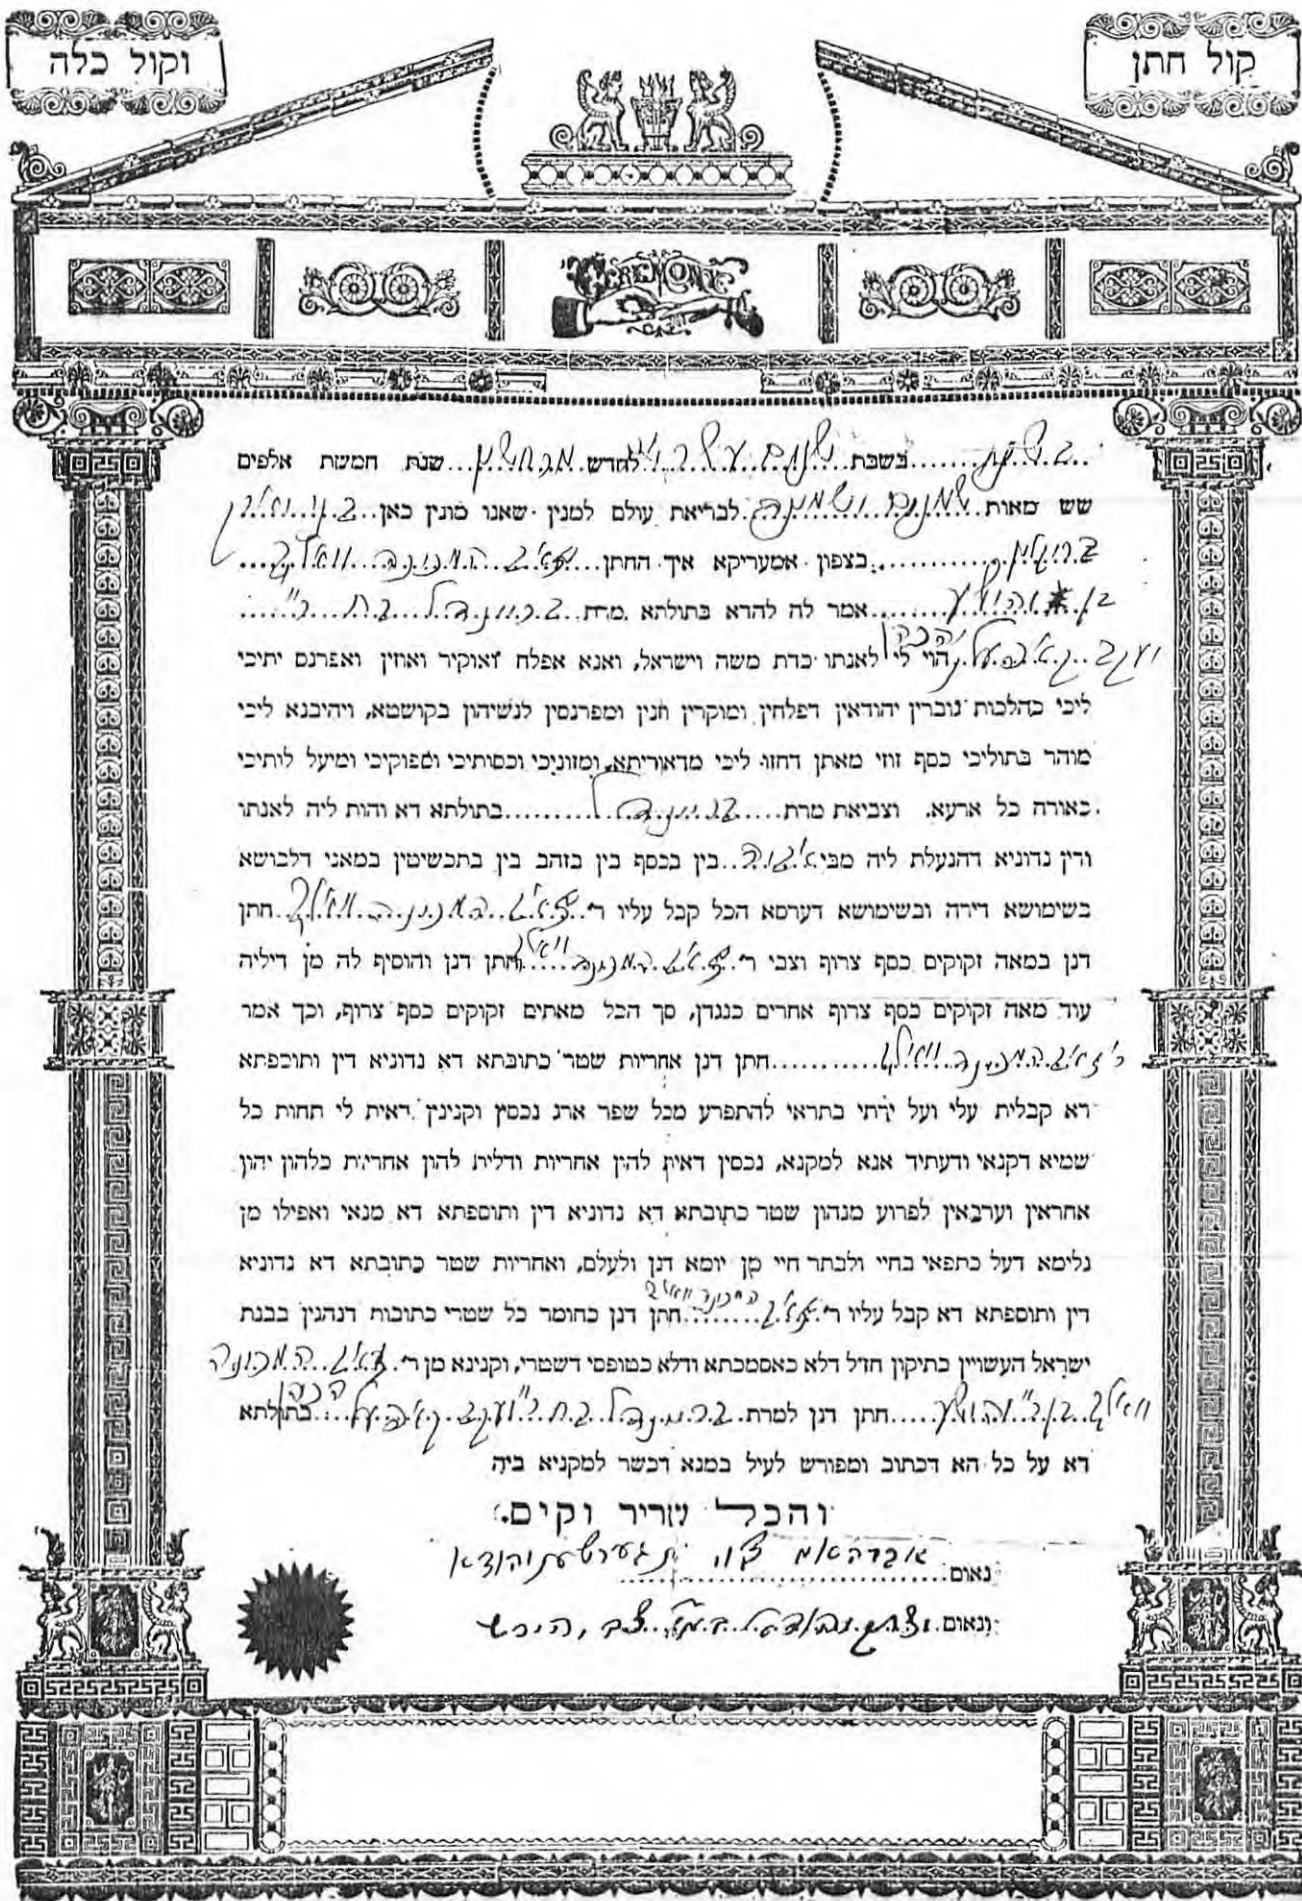 קול חתן
וקול כלה
CEREMONY
בשבת שנים עשר לחדש מרחשון שנת חמשת אלפים
שש מאות שמנים ושמונה לבריאת עולם למנין שאנו מונין כאן בנויארק
ברוקלין בצפון אמעריקא איך החתן זאב המכונה וואלף
בן יהושע אמר לה להדא בתולתא מרת בריינדל בת ר'
יעקב קאפעל הכהן הוי לי לאנתו כדת משה וישראל, ואנא אפלח ואוקיר ואוזין ואפרנס יתיכי
ליכי כהלכות גוברין יהודאין דפלחין ומוקרין וזנין ומפרנסין לנשיהון בקושטא, ויהיבנא ליכי
מוהר בתוליכי כסף זוזי מאתן דחזו ליכי מדאוריתא, ומזוניכי וכסותיכי וספוקיכי ומיעל לותיכי
כאורח כל ארעא. וצביאת מרת בריינדל בתולתא דא והות ליה לאנתו
ודין נדוניא דהנעלת ליה מבי אבוה בין בכסף בין בזהב בין בתכשיטין במאני דלבושא
בשימושא דירה ובשימושא דערסא הכל קבל עליו ר' זאב המכונה וואלף חתן
דנן במאה זקוקים כסף צרוף וצבי ר' זאב המכונה וואלף חתן דנן והוסיף לה מן דיליה
עוד מאה זקוקים כסף צרוף אחרים כנגדן, סך הכל מאתים זקוקים כסף צרוף, וכך אמר
ר' זאב המכונה וואלף חתן דנן אחריות שטר כתובתא דא נדוניא דין ותוספתא
דא קבלית עלי ועל ירתי בתראי להתפרע מכל שפר ארג נכסין וקנינין דאית לי תחות כל
שמיא דקנאי ודעתיד אנא למקנא, נכסין דאית להון אחריות ודלית להון אחריות כלהון יהון
אחראין וערבאין לפרוע מנהון שטר כתובתא דא נדוניא דין ותוספתא דא מנאי ואפילו מן
גלימא דעל כתפאי בחיי ולבתר חיי מן יומא דנן ולעלם, ואחריות שטר כתובתא דא נדוניא
דין ותוספתא דא קבל עליו ר' זאב המכונה וואלף חתן דנן כחומר כל שטרי כתובות דנהגין בבנת
ישראל העשויין כתיקון חז"ל דלא כאסמכתא ודלא כטופסי דשטרי, וקנינא מן ר' זאב המכונה
וואלף בן ר' יהושע חתן דנן למרת בריינדל בת ר' יעקב קאפעל הכהן בתולתא
דא על כל הא דכתוב ומפורש לעיל במנא דכשר למקניא ביה
והכל שריר וקים.
נאום אברהאם
ונאום יצחק הירש